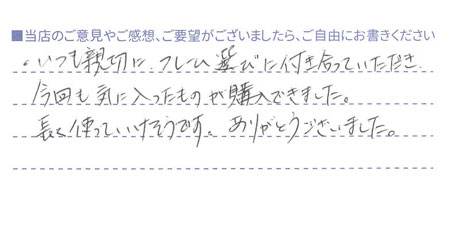 ■当店のご意見やご感想、ご要望がございましたら、ご自由にお書きください
・いつも親切に フレーム選びに付き合っていただき
今回も気に入ったものが購入できました。
長く使っていけそうです。ありがとうございました。